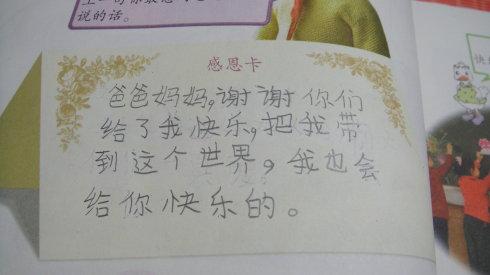 说的话。
感恩卡
爸爸妈妈,谢谢你们
给了我快乐,把我带
到这个世界,我也会
给你快乐的。